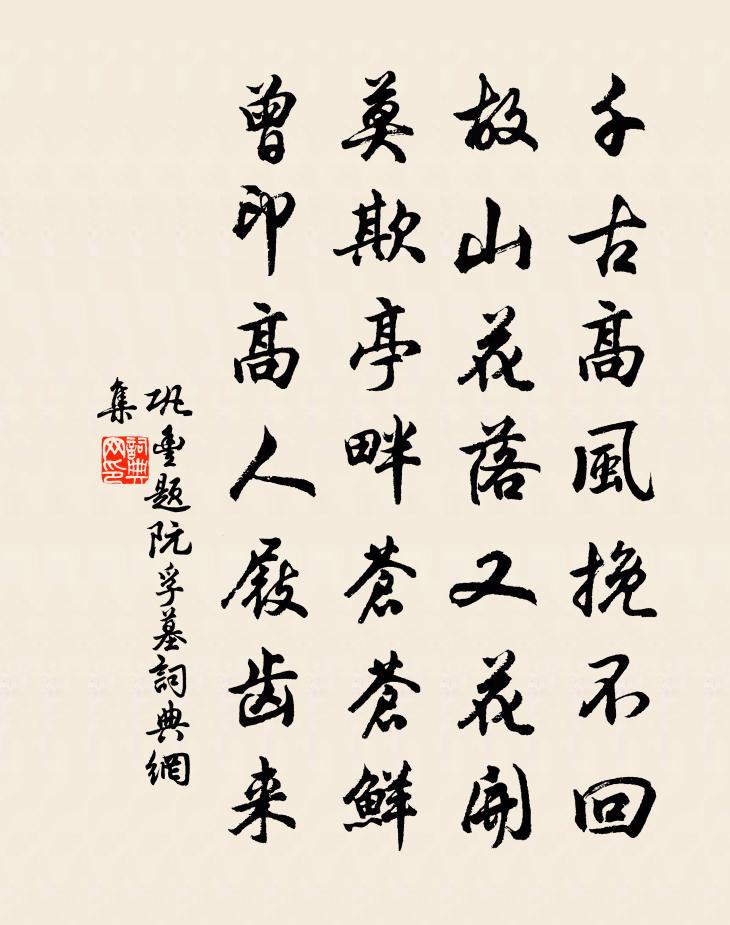 千古高風挽不回
故山花落又花開
莫欺亭畔蒼蒼鮮
曾印高人屐齒来
巩豐題阮孚墓詞典網
集
詞典
网印